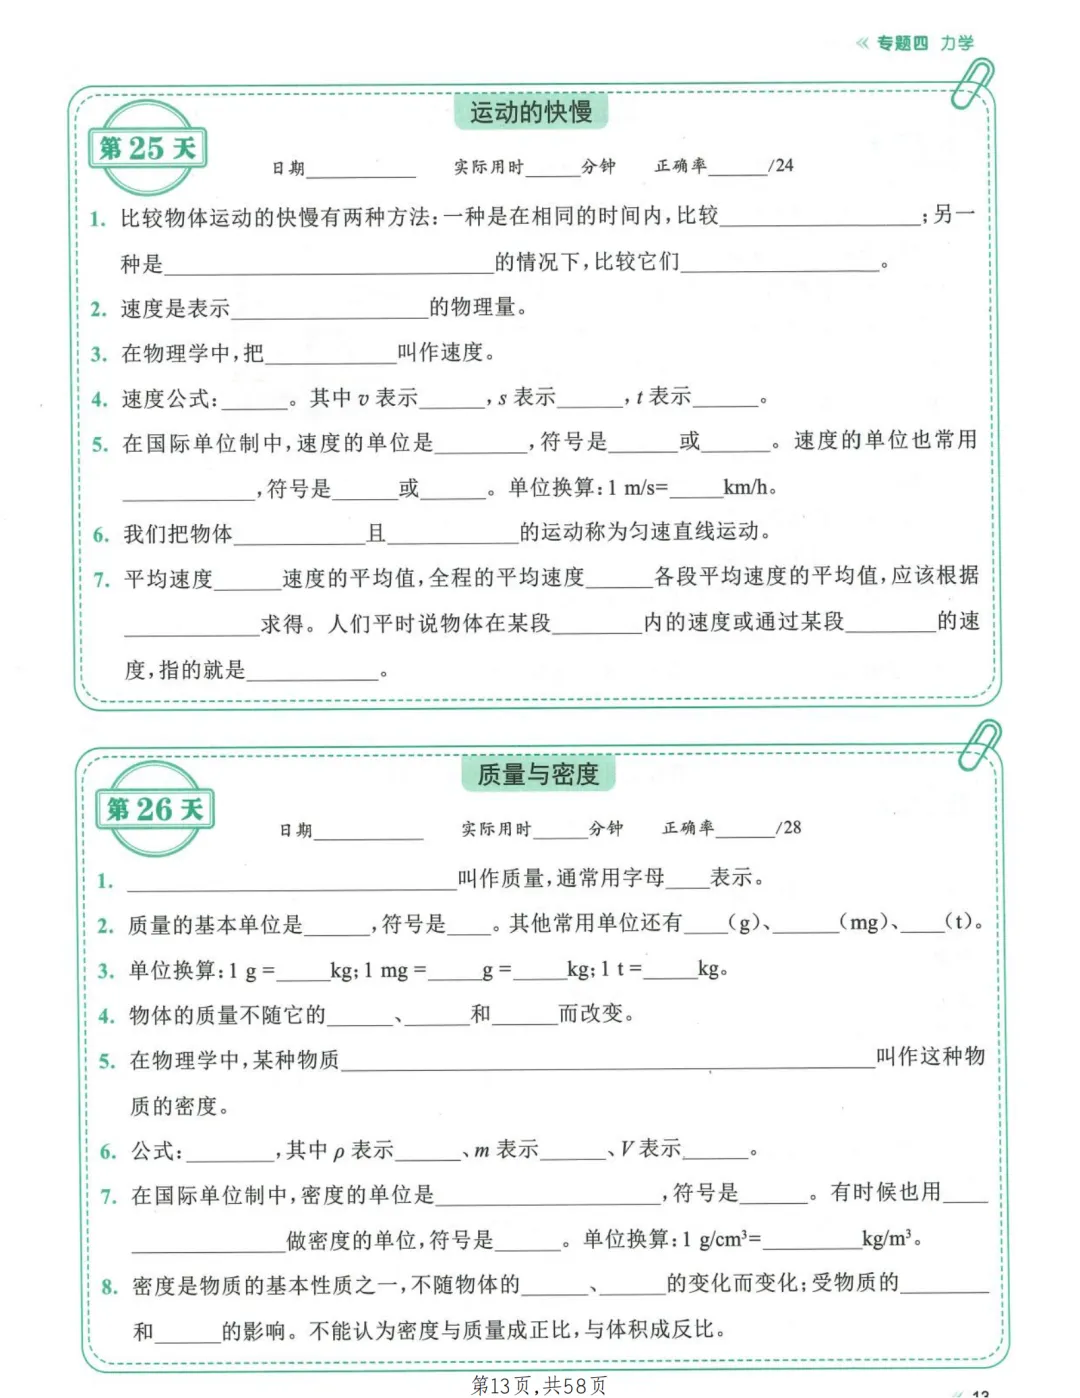 « 专题四 力学
运动的快慢
第25天
日期__________ 实际用时_____分钟 正确率_____/24
1. 比较物体运动的快慢有两种方法:一种是在相同的时间内,比较__________________;另一
种是______________________________的情况下,比较它们__________________。
2. 速度是表示__________________的物理量。
3. 在物理学中,把____________叫作速度。
4. 速度公式:______。其中 v 表示______,s 表示______,t 表示______。
5. 在国际单位制中,速度的单位是________,符号是______或______。速度的单位也常用
____________,符号是______或______。单位换算:1 m/s=_____km/h。
6. 我们把物体____________且____________的运动称为匀速直线运动。
7. 平均速度______速度的平均值,全程的平均速度______各段平均速度的平均值,应该根据
____________求得。人们平时说物体在某段________内的速度或通过某段________的速
度,指的就是____________。
质量与密度
第26天
日期__________ 实际用时_____分钟 正确率_____/28
1. ______________________________叫作质量,通常用字母____表示。
2. 质量的基本单位是______,符号是____。其他常用单位还有____(g)、______(mg)、____(t)。
3. 单位换算:1 g =_____kg;1 mg =_____g =_____kg;1 t =_____kg。
4. 物体的质量不随它的______、______和______而改变。
5. 在物理学中,某种物质________________________________________________叫作这种物
质的密度。
6. 公式:________,其中 ρ 表示______、m 表示______、V 表示______。
7. 在国际单位制中,密度的单位是____________________,符号是______。有时候也用____
______________做密度的单位,符号是______。单位换算:1 g/cm³=_________kg/m³。
8. 密度是物质的基本性质之一,不随物体的______、______的变化而变化;受物质的________
和______的影响。不能认为密度与质量成正比,与体积成反比。
第13页,共58页
« 13